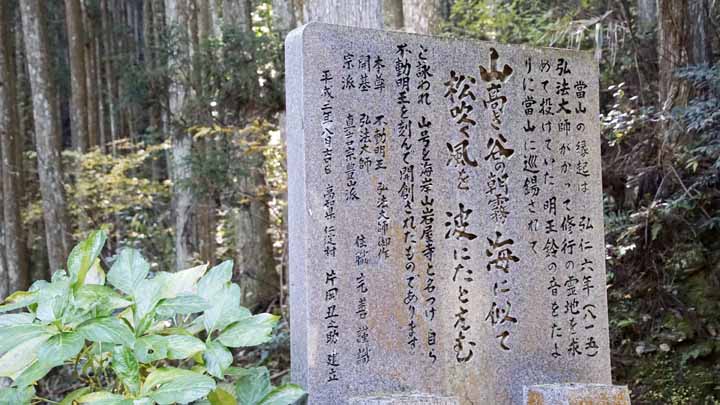 當山の縁起は 弘仁六年(八一五)
弘法大師がかつて修行の霊地を求
めて投げていた明王鈴の音をたよ
りに當山に巡錫されて
山高き谷の朝霧 海に似て
松吹く風を 波にたとえむ
と詠われ 山号を海岸山岩屋寺と名つけ 自ら
不動明王を刻んて開創されたものてあります
本尊 不動明王 弘法大師御作
開基 弘法大師
宗派 真言宗豊山派
住職 完善 謹識
平成二年八月吉日 高知県 仁淀村 片岡丑之助 建立